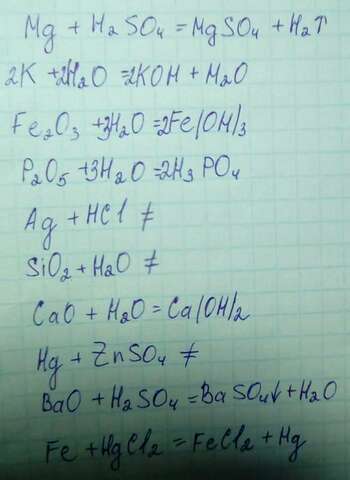 Mg + H₂SO₄ = MgSO₄ + H₂↑
2K + 2H₂O = 2KOH + H₂O
Fe₂O₃ + 3H₂O = 2Fe(OH)₃
P₂O₅ + 3H₂O = 2H₃PO₄
Ag + HCl ≠
SiO₂ + H₂O ≠
CaO + H₂O = Ca(OH)₂
Hg + ZnSO₄ ≠
BaO + H₂SO₄ = BaSO₄↓ + H₂O
Fe + HgCl₂ = FeCl₂ + Hg